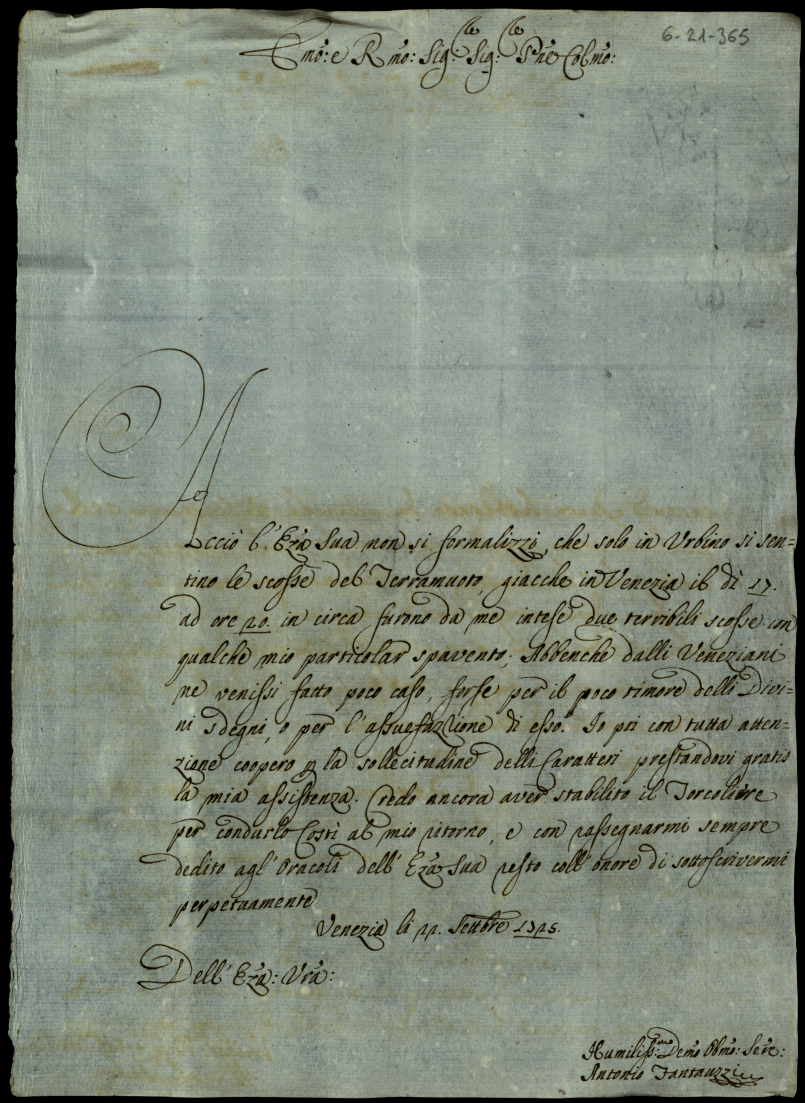 6-21-365
Emõ: e Rmõ: Sig:re Sig:re Pne Colmõ:
Acciò l'Eza Sua non si formalizzi, che solo in Urbino si sen=
tino le scosse del Terramuoto, giacche in Venezia il dì 17.
ad ore 20. in circa furono da me intese due terribili scosse con
qualche mio particolar spavento; Abbenche dalli Veneziani
ne venissi fatto poco caso, forse per il poco timore delli Divi=
ni Sdegni, o per l'assuefazzione di esso. Io poi con tutta atten=
zione coopero p la sollecitudine delli Caratteri prestandovi gratis
la mia assistenza. Credo ancora aver stabilito il Torcoliere
per condurlo Costì al mio ritorno, e con rassegnarmi sempre
dedito agl'Oracoli dell'Eza Sua resto coll'onore di sottoscrivermi
perpetuamente
Venezia li 22. Settbre 1725.
Dell'Eza: Vrã:
Humiliss:mo Demo Obmo: Sere:
Antonio Fantauzzi